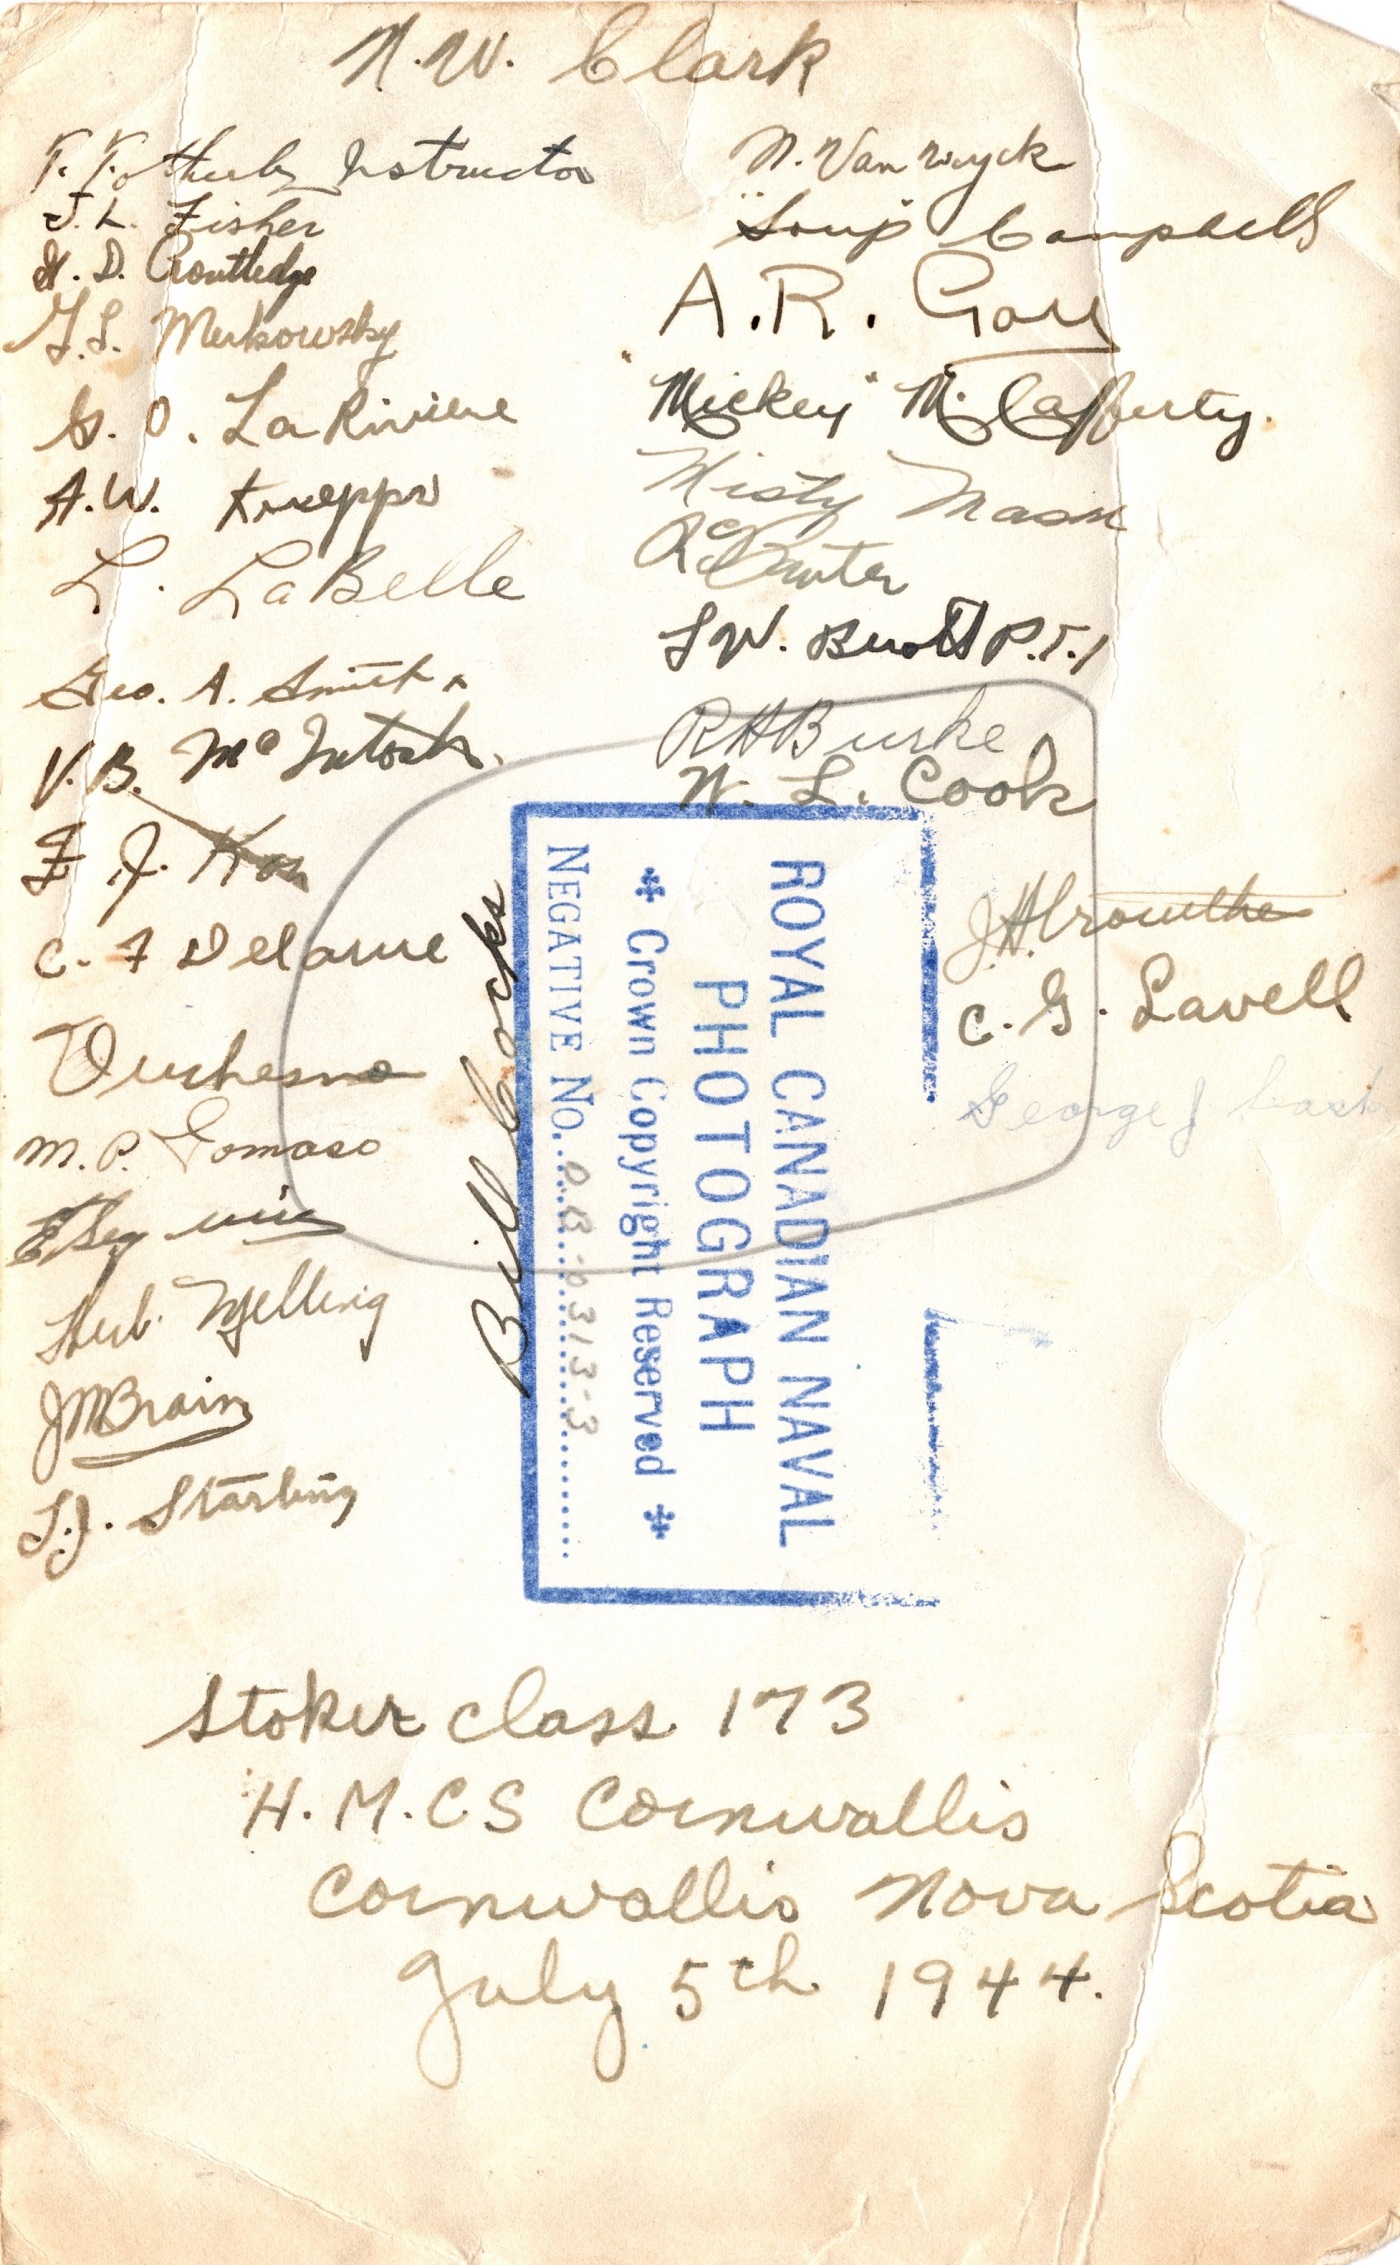 N.W. Clark
Instructor
J. L. Fisher
H. D. Routledge
G.S. Merkowsky
G. O. LaRiviere
A.W.
L. LaBelle
Geo. A. Smith.
V.B. McIntosh.
F. J.
C. F Delarue
Duchesne
M. P. Tomaso
Herb. Melling
JM Brain
S.J. Starling
N. Van Wyck
"Soup" Campbell
A.R. Gall
"Mickey" McCafferty.
Misty Mason
S W. P.T.I
RH Burke
W. L. Cook
JH Crowther
C. G. Lavell
George J
Bill Cooks
ROYAL CANADIAN NAVAL
PHOTOGRAPH
* Crown Copyright Reserved *
NEGATIVE No. DB-0313-3
Stoker class 173
H.M.CS Cornwallis
Cornwallis Nova Scotia
July 5th 1944.